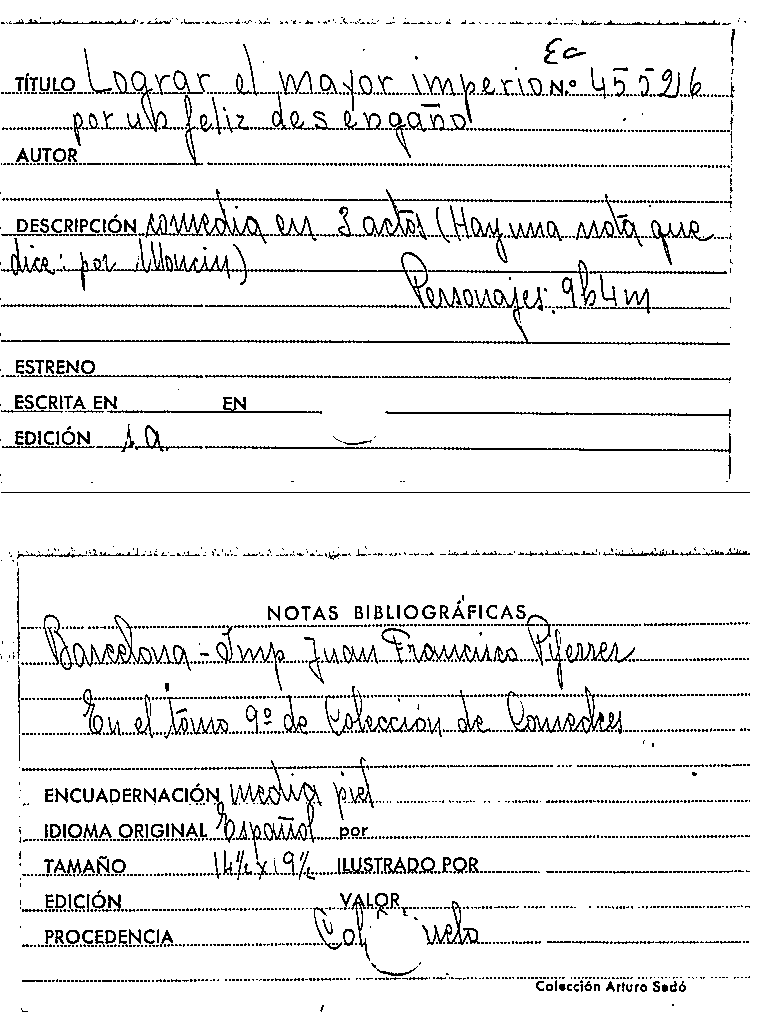 Ea
TÍTULO Lograr el mayor imperio N.º 45526
por un feliz desengaño
AUTOR
DESCRIPCIÓN comedia en 3 actos (Hay una nota que
dice: por Moncin)
Personajes: 9h4m
ESTRENO
ESCRITA EN EN
EDICIÓN s.a.
NOTAS BIBLIOGRÁFICAS
Barcelona - Imp Juan Francisco Piferrer
En el tomo 9º de Colección de Comedies
ENCUADERNACIÓN media piel
IDIOMA ORIGINAL Español por
TAMAÑO 14½ x 19½ ILUSTRADO POR
EDICIÓN VALOR
PROCEDENCIA
Colección Arturo Sedó